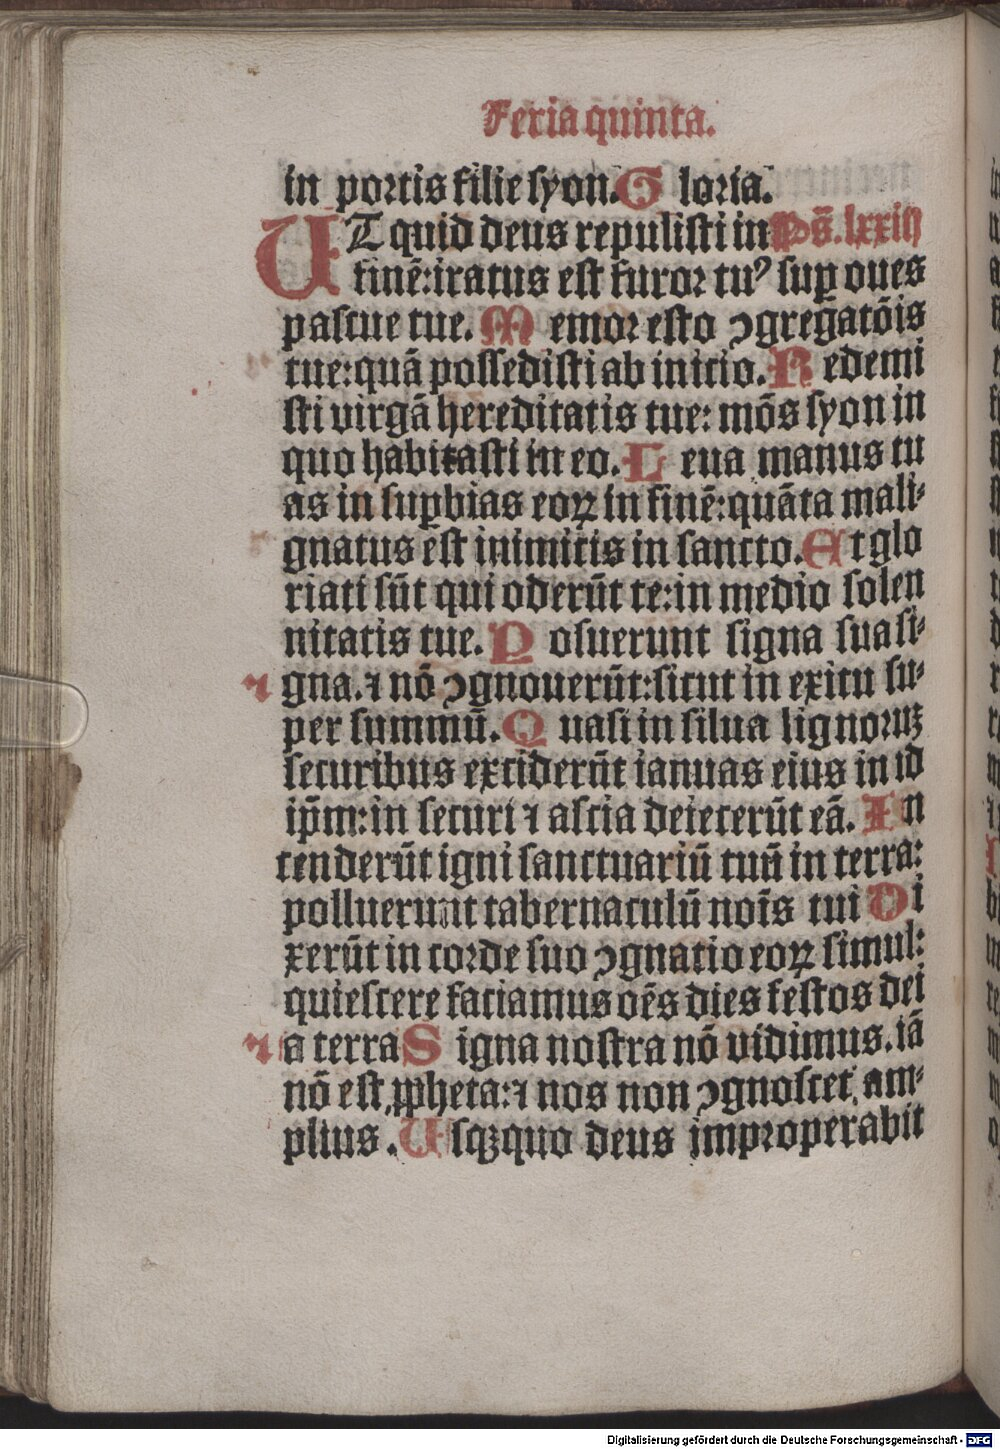 Feria quinta.
in portis filie syon. Gloria.
UT quid deus repulisti in Ps̄. lxxiij
finē: iratus est furor tuꝰ suꝑ oues
pascue tue. Memor esto ꝯgregatōis
tue: quā possedisti ab inicio. Redemi
sti virgā hereditatis tue: mōs syon in
quo habitasti in eo. Leua manus tu
as in suꝑbias eoꝝ in finē: quāta mali-
gnatus est inimicus in sancto. Et glo
riati sūt qui oderūt te: in medio solen
nitatis tue. Posuerunt signa sua si-
gna. ⁊ nō ꝯgnouerūt: sicut in exitu su-
per summū. Quasi in silua lignoruꝫ
securibus exciderūt ianuas eius in id
ip̄m: in securi ⁊ ascia deiecerūt eā. In
cenderūt igni sanctuariū tuū in terra:
polluerunt tabernaculū noīs tui Di
xerūt in corde suo ꝯgnatio eoꝝ simul:
quiescere faciamus oēs dies festos dei
a terra Signa nostra nō vidimus. iā
nō est ꝓpheta: ⁊ nos non ꝯgnoscet am-
plius. Usqꝫquo deus improperabit
Digitalisierung gefördert durch die Deutsche Forschungsgemeinschaft - DFG